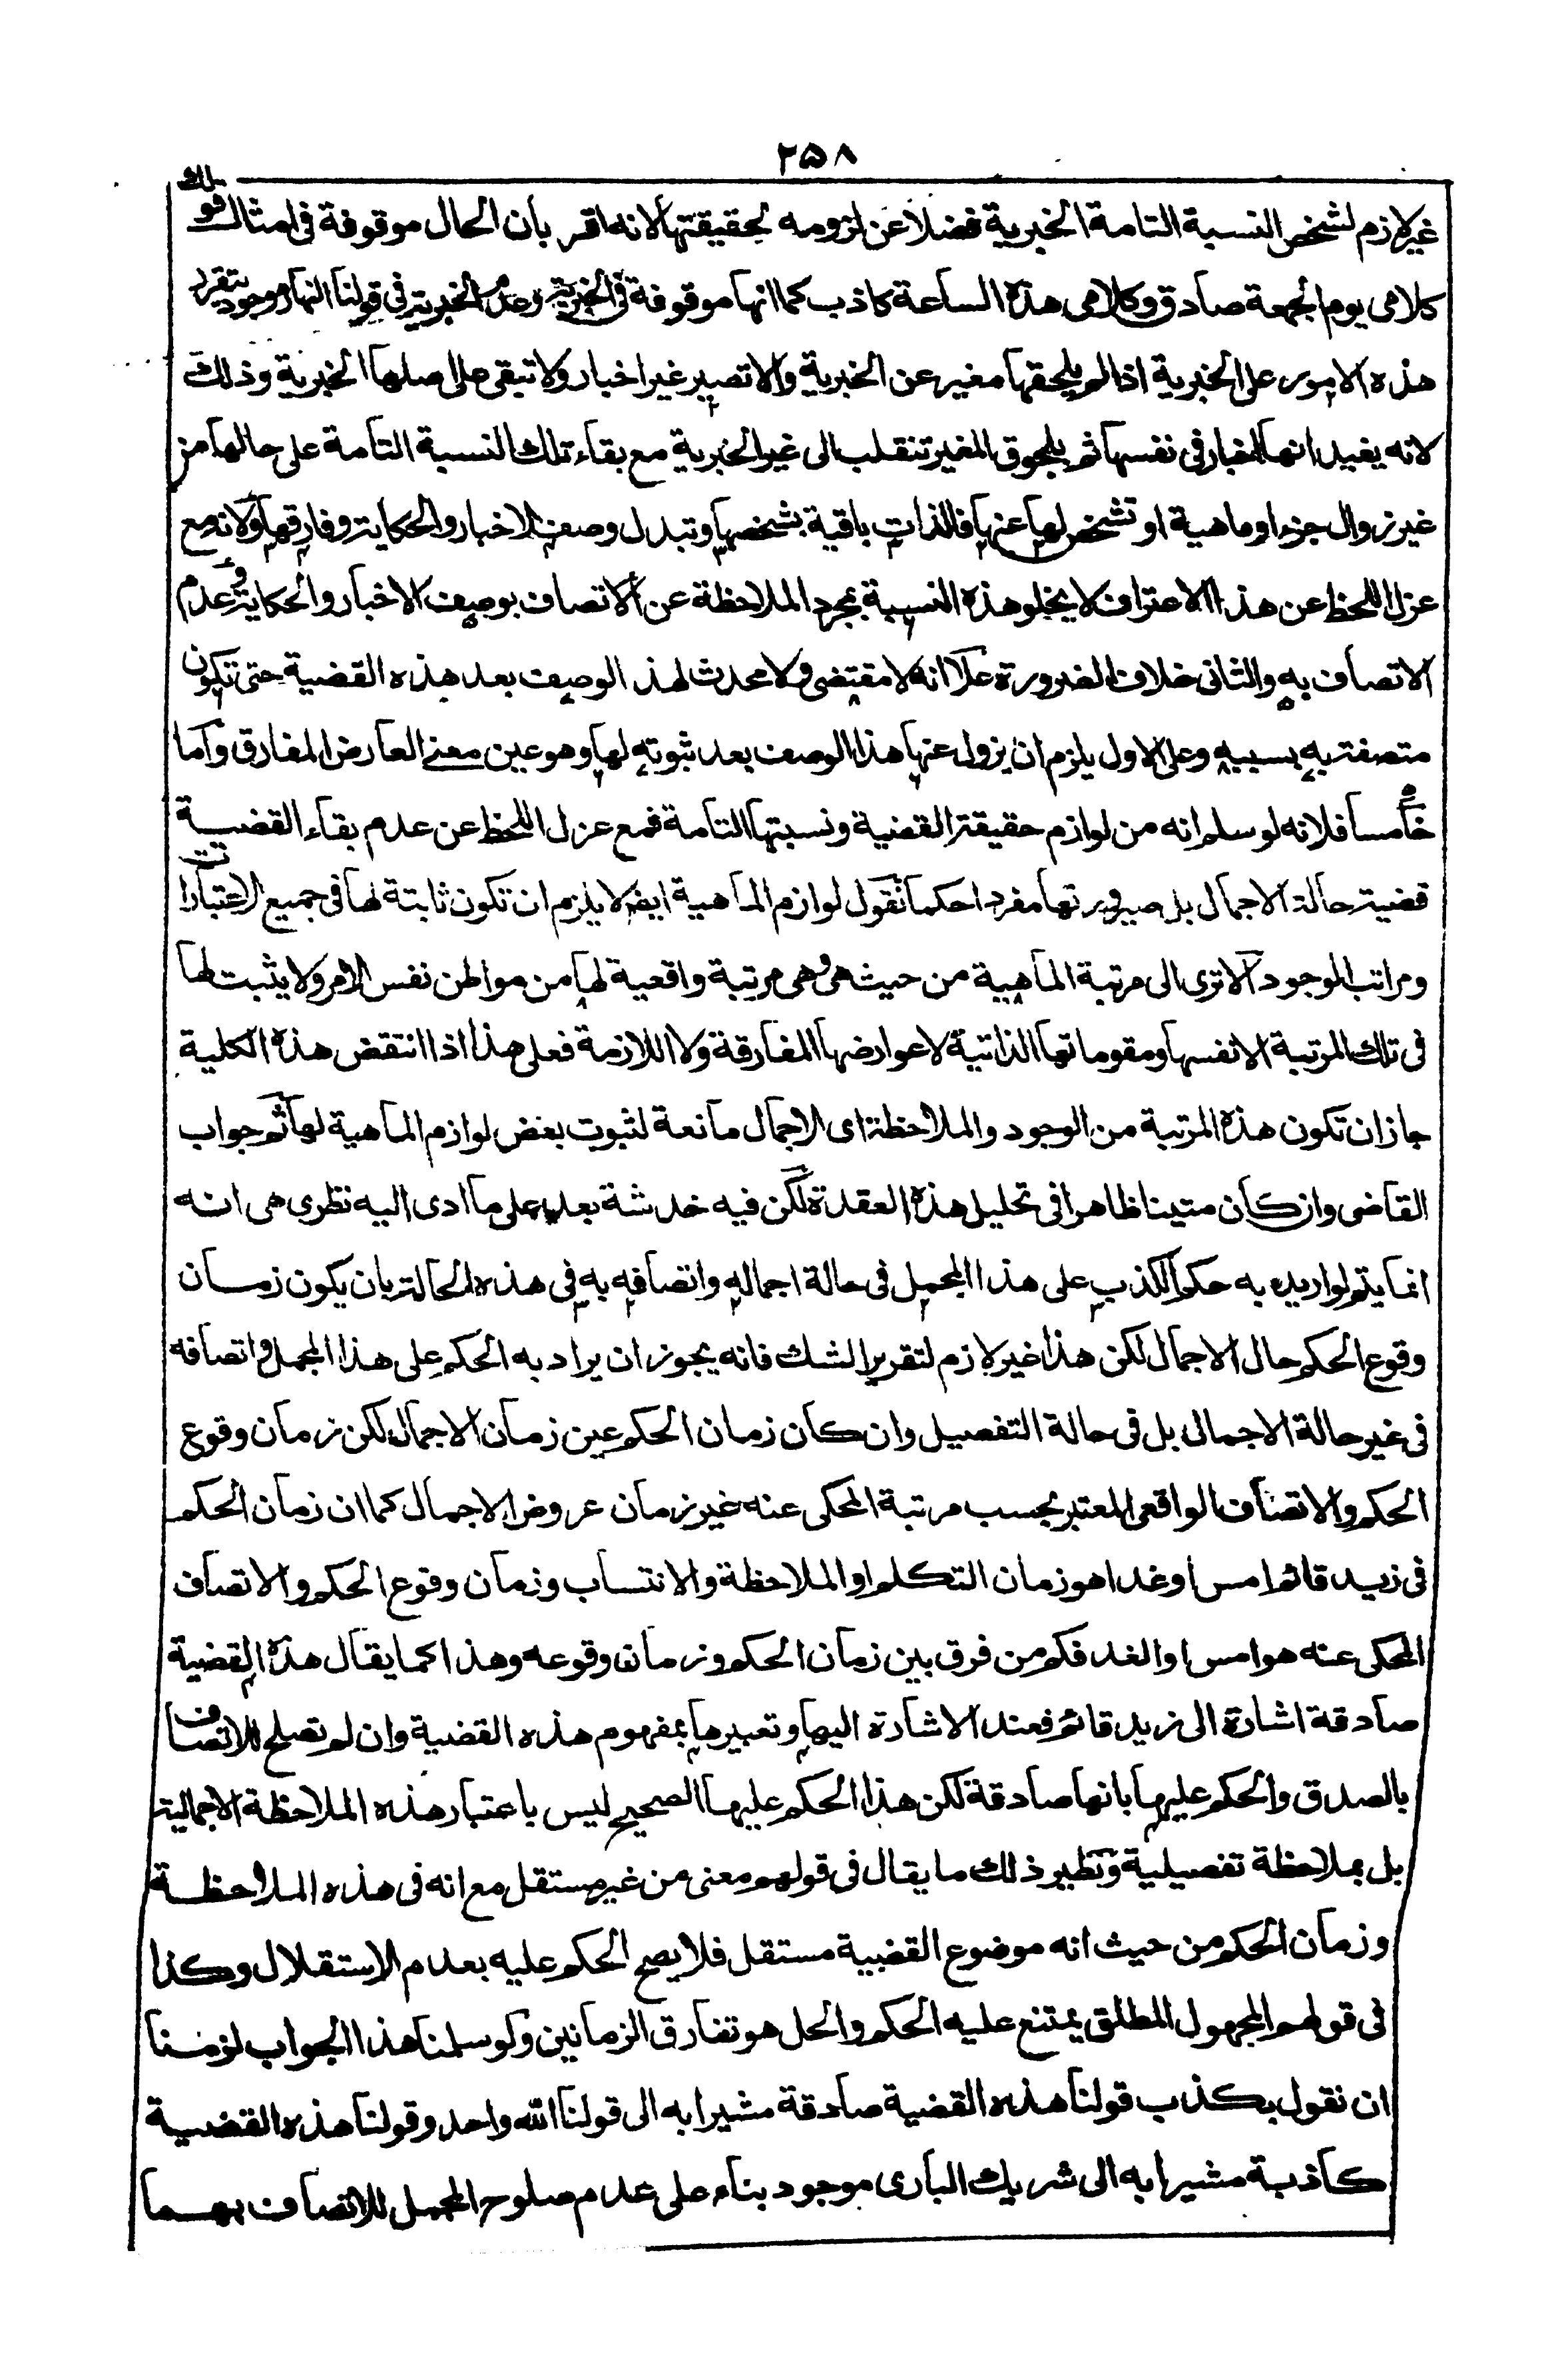 ٢٥٨
غير لازم لشخص النسبة التامة الخبرية فضلا عن لزومه لحقيقتها لانه اقر بان الحال موقوفة فى امثال قولك
كلامى يوم الجمعة صادق وكلامى هذه الساعة كاذب كما انها موقوفة فى الخبرية وعدم الخبرية فى قولنا النهار موجود بتقرر
هذه الامور على الخبرية اذا لم يلحقها مغير عن الخبرية والا تصير غير اخبار ولا تبقى على اصلها الخبرية وذلك
لانه يفيد انها اخبار فى نفسها ثم بلحوق المغير تنقلب الى غير الخبرية مع بقاء تلك النسبة التامة على حالها من
غير زوال جزء او ماهية او تشخص لها عنها فالذات باقية بشخصها وتبدل وصف الاخبار والحكاية وفارقها ولانه مع
عزل اللحظ عن هذا الاعتراف لا يخلو هذه النسبة بمجرد الملاحظة عن الاتصاف بوصف الاخبار والحكاية وعدم
الاتصاف به والثانى خلاف الضرورة على انه لا مقتضى ولا محدث لهذا الوصف بعد هذه القضية حتى تكون
متصفة به بسببه وعلى الاول يلزم ان يزول عنها هذا الوصف بعد ثبوته لها وهو عين معنى العارض المفارق واما
خامسا فلانه لو سلم انه من لوازم حقيقة القضية ونسبتها التامة فمع عزل اللحظ عن عدم بقاء القضية
قضية حالة الاجمال بل صيرورتها مفردا حكما نقول لوازم الماهية ايضا لا يلزم ان تكون ثابتة لها فى جميع الاعتبارات
ومراتب الموجود الا ترى الى مرتبة الماهية من حيث هى وهى مرتبة واقعية لها من مواطن نفس الامر ولا يثبت لها
فى تلك المرتبة الا نفسها ومقوماتها الذاتية لا عوارضها المفارقة ولا اللازمة فعلى هذا اذا انتقض هذه الكلية
جاز ان تكون هذه المرتبة من الوجود والملاحظة اى الاجمال مانعة لثبوت بعض لوازم الماهية لها ثم جواب
القاضى وان كان متينا ظاهرا فى تحليل هذه العقدة لكن فيه خدشة بعد على ما ادى اليه نظرى هى انه
انما يتم لو اريد به حكم الكذب على هذا المجمل فى حالة اجماله واتصافه به فى هذه الحالة بان يكون زمان
وقوع الحكم حال الاجمال لكن هذا غير لازم لتقرير الشك فانه يجوز ان يراد به الحكم على هذا المجمل واتصافه
فى غير حالة الاجمال بل فى حالة التفصيل وان كان زمان الحكم عين زمان الاجمال لكن زمان وقوع
الحكم والاتصاف الواقعى المعتبر بحسب مرتبة المحكى عنه غير زمان عروض الاجمال كما ان زمان الحكم
فى زيد قائم امس او غدا هو زمان التكلم او الملاحظة والانتساب وزمان وقوع الحكم والاتصاف
المحكى عنه هو امس او الغد فكم من فرق بين زمان الحكم وزمان وقوعه وهذا كما يقال هذه القضية
صادقة اشارة الى زيد قائم فعند الاشارة اليها وتعبيرها بمفهوم هذه القضية وان لم تصلح للاتصاف
بالصدق والحكم عليها بانها صادقة لكن هذا الحكم عليها الصحيح ليس باعتبار هذه الملاحظة الاجمالية
بل بملاحظة تفصيلية ونظير ذلك ما يقال فى قولهم معنى من غير مستقل مع انه فى هذه الملاحظة
وزمان الحكم من حيث انه موضوع القضية مستقل فلا يصح الحكم عليه بعدم الاستقلال وكذا
فى قولهم المجهول المطلق يمتنع عليه الحكم والحل هو تفارق الزمانين ولو سلمنا هذا الجواب لزمنا
ان نقول بكذب قولنا هذه القضية صادقة مشيرا به الى قولنا الله واحد وقولنا هذه القضية
كاذبة مشيرا به الى شريك البارى موجود بناء على عدم صلوح المجمل للاتصاف بهما